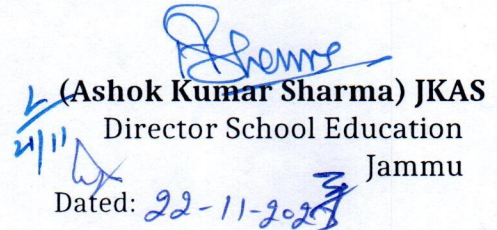 (Ashok Kumar Sharma) JKAS
Director School Education
21/11
Jammu
Dated: 22-11-2023